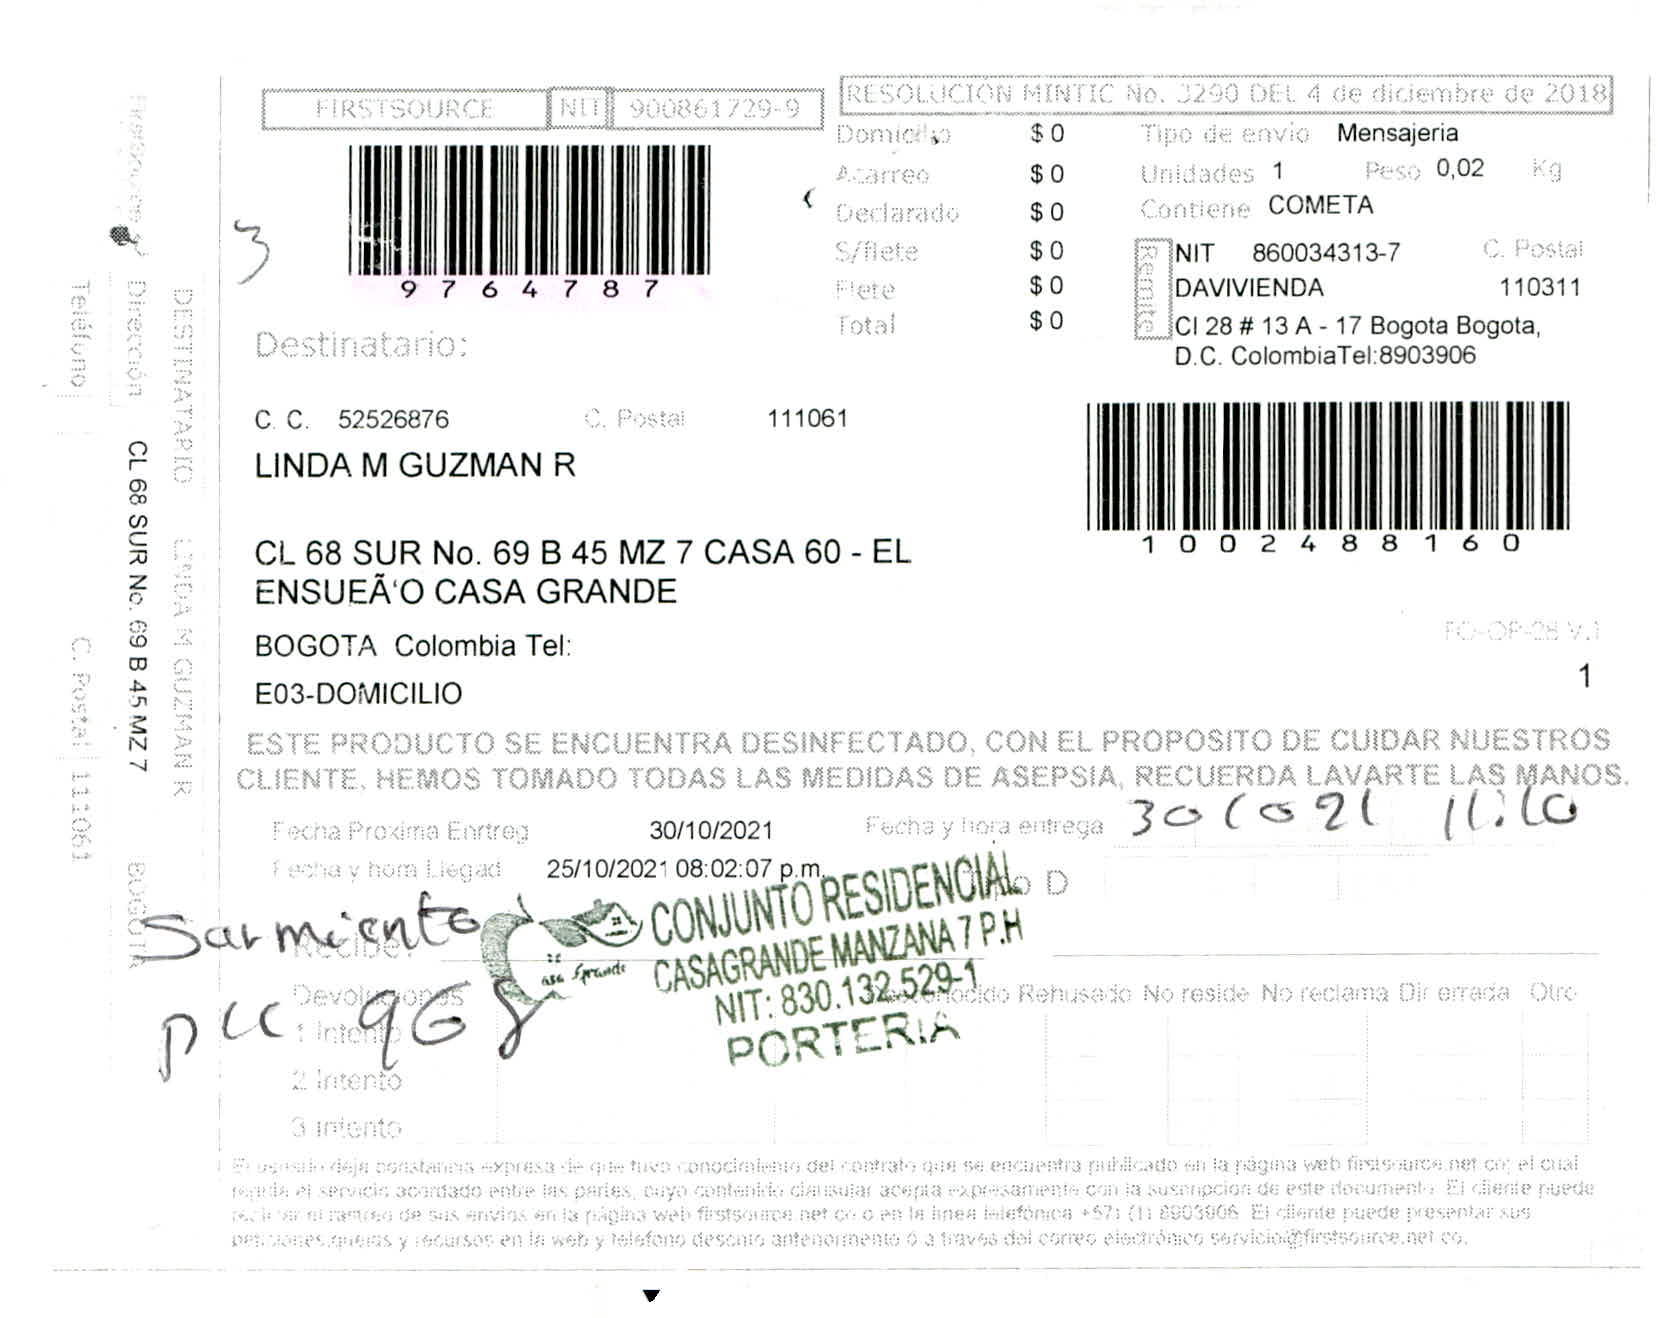 FIRSTSOURCE NIT 900861729-9
RESOLUCION MINTIC No. 3290 DEL 4 de diciembre de 2018
Domicilio $ 0 Tipo de envio Mensajeria
Acarreo $ 0 Unidades 1 Peso 0,02 Kg
Declarado $ 0 Contiene COMETA
S/flete $ 0
Flete $ 0
Total $ 0
Remite
NIT 860034313-7 C. Postal
DAVIVIENDA 110311
Cl 28 # 13 A - 17 Bogota Bogota,
D.C. ColombiaTel:8903906
9764787
3
Destinatario:
C. C. 52526876 C. Postal 111061
LINDA M GUZMAN R
10024488160
CL 68 SUR No. 69 B 45 MZ 7 CASA 60 - EL
ENSUEÃ‘O CASA GRANDE
BOGOTA Colombia Tel:
E03-DOMICILIO
FO-OP-28 V.1
1
ESTE PRODUCTO SE ENCUENTRA DESINFECTADO, CON EL PROPOSITO DE CUIDAR NUESTROS
CLIENTE. HEMOS TOMADO TODAS LAS MEDIDAS DE ASEPSIA, RECUERDA LAVARTE LAS MANOS.
Fecha Proxima Enrtreg 30/10/2021 Fecha y hora entrega 30 10 21 11:10
Fecha y hora Llegad 25/10/2021 08:02:07 p.m.
D
Sarmiento
Recibe:
pcc 968
CONJUNTO RESIDENCIAL
CASAGRANDE MANZANA 7 P.H
NIT: 830.132.529-1
PORTERIA
Casa Grande
Devoluciones Desconocido Rehusado No reside No reclama Dir errada Otro
1 Intento
2 Intento
3 Intento
El usuario deja constancia expresa de que tuvo conocimiento del contrato que se encuentra publicado en la página web firstsource.net.co; el cual
regula el servicio acordado entre las partes, cuyo contenido clausular acepta expresamente con la suscripcion de este documento. El cliente puede
realizar el rastreo de sus envios en la página web firstsource.net.co o en la linea telefónica +571 (1) 8903906. El cliente puede presentar sus
peticiones,quejas y recursos en la web y telefono descrito anteriormente ó a traves del correo electrónico servicio@firstsource.net.co.
DESTINATARIO LINDA M GUZMAN R
Dirección CL 68 SUR No. 69 B 45 MZ 7 BOGOTA
Teléfono C. Postal 111061